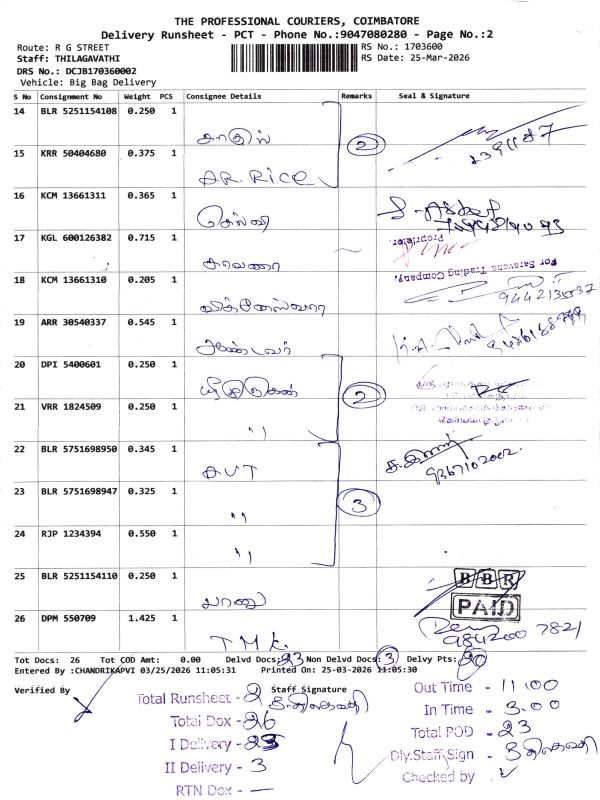 THE PROFESSIONAL COURIERS, COIMBATORE
Delivery Runsheet - PCT - Phone No.:9047080280 - Page No.:2
Route: R G STREET
RS No.: 1703600
Staff: THILAGAVATHI
RS Date: 25-Mar-2026
DRS No.: DCJB170360002
Vehicle: Big Bag Delivery
S No Consignment No Weight PCS Consignee Details Remarks Seal & Signature
14 BLR 5251154108 0.250 1
2
15 KRR 50404680 0.375 1 AR.RICE
16 KCM 13661311 0.365 1 செல்வி
17 KGL 600126382 0.715 1 சரவணா
Proprietor.
For Saravana Trading Company.
18 KCM 13661310 0.205 1 விக்னேஸ்வரா
19 ARR 30540337 0.545 1
20 DPI 5400601 0.250 1
2
21 VRR 1824509 0.250 1 "
22 BLR 5751698950 0.345 1
9367102002
23 BLR 5751698947 0.325 1 "
3
24 RJP 1234394 0.550 1 "
25 BLR 5251154110 0.250 1 பானு
BBR
PAID
26 DPM 550709 1.425 1 TMK
984200 7821
Tot Docs: 26 Tot COD Amt: 0.00 Delvd Docs: 23 Non Delvd Docs: 3 Delvy Pts: 20
Entered By :CHANDRIKAPVI 03/25/2026 11:05:31 Printed On: 25-03-2026 11:05:30
Verified By
Staff Signature
Total Runsheet - 2
Total Dox - 26
I Delivery - 23
II Delivery - 3
RTN Dox - —
Out Time - 11.00
In Time - 3.00
Total POD - 23
Dly.Staff Sign -
Checked by